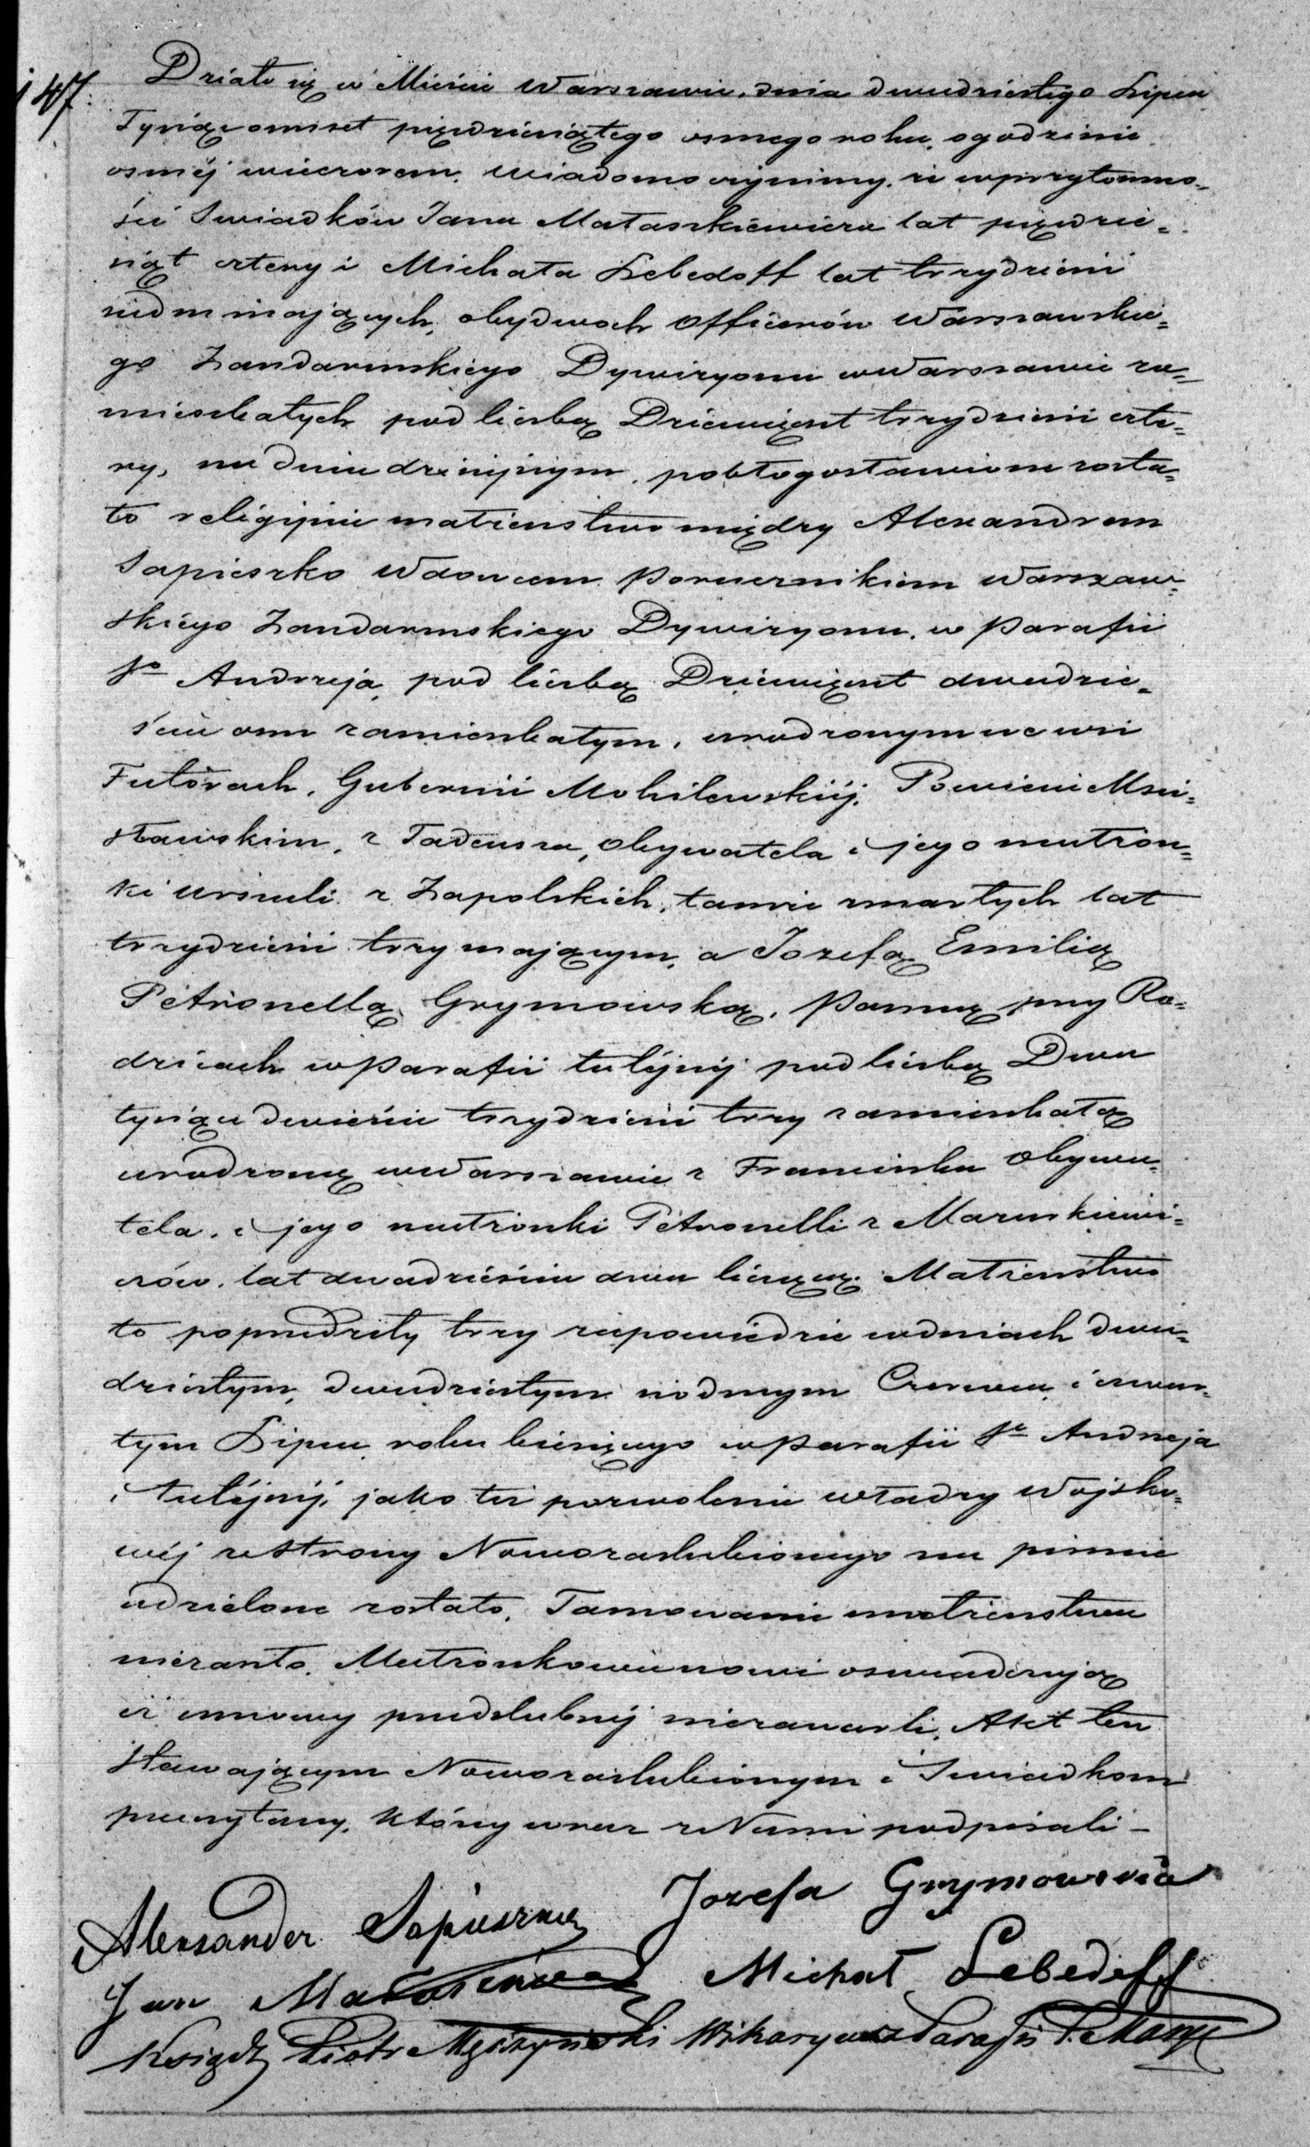 147. Działo się w Mieście Warszawie, dnia dwudziestego Lipca
Tysiąc ośmset pięćdziesiątego osmego roku, o godzinie
osméj wieczorem. Wiadomo czynimy, że w przytomno-
ści Świadków Jana Mataszkiewicza lat pięćdzie-
siąt cztery i Michała Lebedoff lat trzydzieści
siedm mających, obydwoch Officerów Warszawskie-
go Żandarmskiego Dywizyonu w Warszawie za-
mieszkałych pod liczbą Dziewięćset trzydzieści czte-
ry, na dniu dzisiejszym, pobłogosławione zosta-
ło religijnie małżeństwo między Alexandrem
Sapieszko Wdowcem Porucznikiem Warszaw-
skiego Żandarmskiego Dywizyonu, w Parafii
Sgo Andrzeja, pod liczbą Dziewięćset dwadzie-
ścia osm zamieszkałym, urodzonym we wsi
Futorach, Gubernii Mohilewskiéj, Powiecie Msci-
sławskim, z Tadeusza, Obywatela i jego małżon-
ki Urszuli z Zapolskich, tamże zmarłych lat
trzydzieści trzy mającym, a Józefą Emilią
Petronellą Grymowską, Panną przy Ro-
dzicach w Parafii tutéjszéj pod liczbą Dwa
tysiące dwieście trzydzieści trzy zamieszkałą
urodzoną w Warszawie z Franciszka Obywa-
tela, i jego małżonki Petronelli z Maruszkiewi-
czów, lat dwadzieścia dwa liczącą. Małżeństwo
to poprzedziły trzy zapowiedzie w dniach dwu-
dziestym, dwudziestym siódmym Czerwca, i czwar-
tym Lipca roku bieżącego w Parafii Sgo Andrzeja
i tutéjszéj, jako też pozwolenie władzy Wojsko-
wéj ze strony Nowozaślubionego na piśmie
udzielone zostało. Tamowanie małżeństwa
nie zaszło. Małżonkowie nowi oświadczają
iż umowy przedślubnéj nie zawarli. Akt ten
stawającym Nowozaślubionym i Świadkom
przeczytany, którzy wraz z Nami podpisali –
Alexander Sapieszko Jozefa Grymowska
Jan Michał Lebedeff
Ksiądz Piotr Wikaryusz Parafii